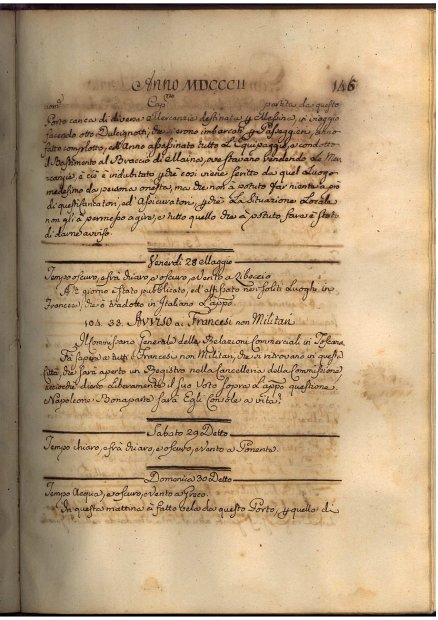 Anno MDCCCII 146
nom. Cap.no partita da questo
Porto carica di diverse Mercanzie destinata p Messina, in viaggio
facendo otto Dulcignotti, che si erono imbarcati p Passeggieri, hanno
fatto complotto, ed'anno assassinato tutto L'Equipaggio, e condotto
il Bastimento al Braccio di Maina, ove stavano vendendo Le Mer-
canzie, e ciò è indubitato p che così viene scritto da quel Luogo
medesimo da persona onesta, ma che non à potuto far niente a prò
di questi Mercatori, ed'Assicuratori, p che La Situazione Locale
non gli à permesso agire, e tutto quello che à potuto fare è stato
di darne avviso.
Venerdì 28 Maggio
Tempo oscuro, e frà chiaro, e oscuro, e Vento a Libeccio
A de giorno è stato pubblicato, ed'affissato nei soliti Luoghi in
Francese, che è tradotto in Italiano L'appo
104. 33. Avviso ai Francesi non Militari
Il Commissario Generale delle Relazioni Commerciali in Toscana
Fà sapere a tutti i Francesi non Militari, che si ritrovano in questa
Città, che sarà aperto un Registro nella Cancelleria della Commissione,
acciocchè dieno Liberamente il suo Voto sopra L'appo questione
Napoleone Bonaparte sarà Egli Console a vita?
Sabato 29 Detto
Tempo chiaro, e frà chiaro, e oscuro, e Vento a Ponente
Domenica 30 Detto
Tempo Acqua, e oscuro, e Vento a Greco
In questa mattina à fatto vela da questo Porto, p quello di